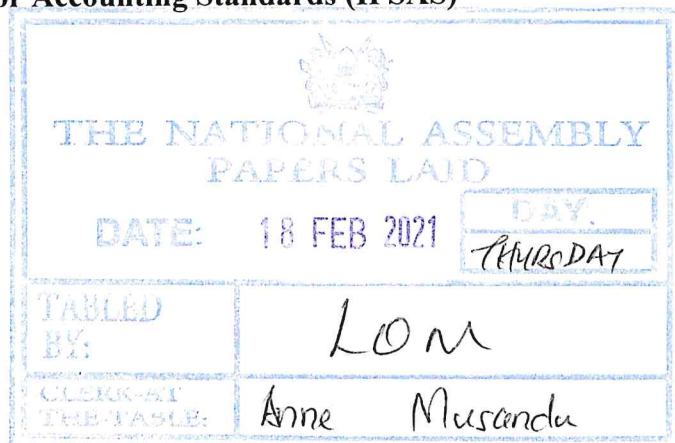 or Accounting Standards (IPSAS)
THE NATIONAL ASSEMBLY
PAPERS LAID
DATE: 18 FEB 2021
DAY.
THURSDAY
TABLED
BY:
LOM
CLERK-AT
THE-TABLE:
Anne Musandu